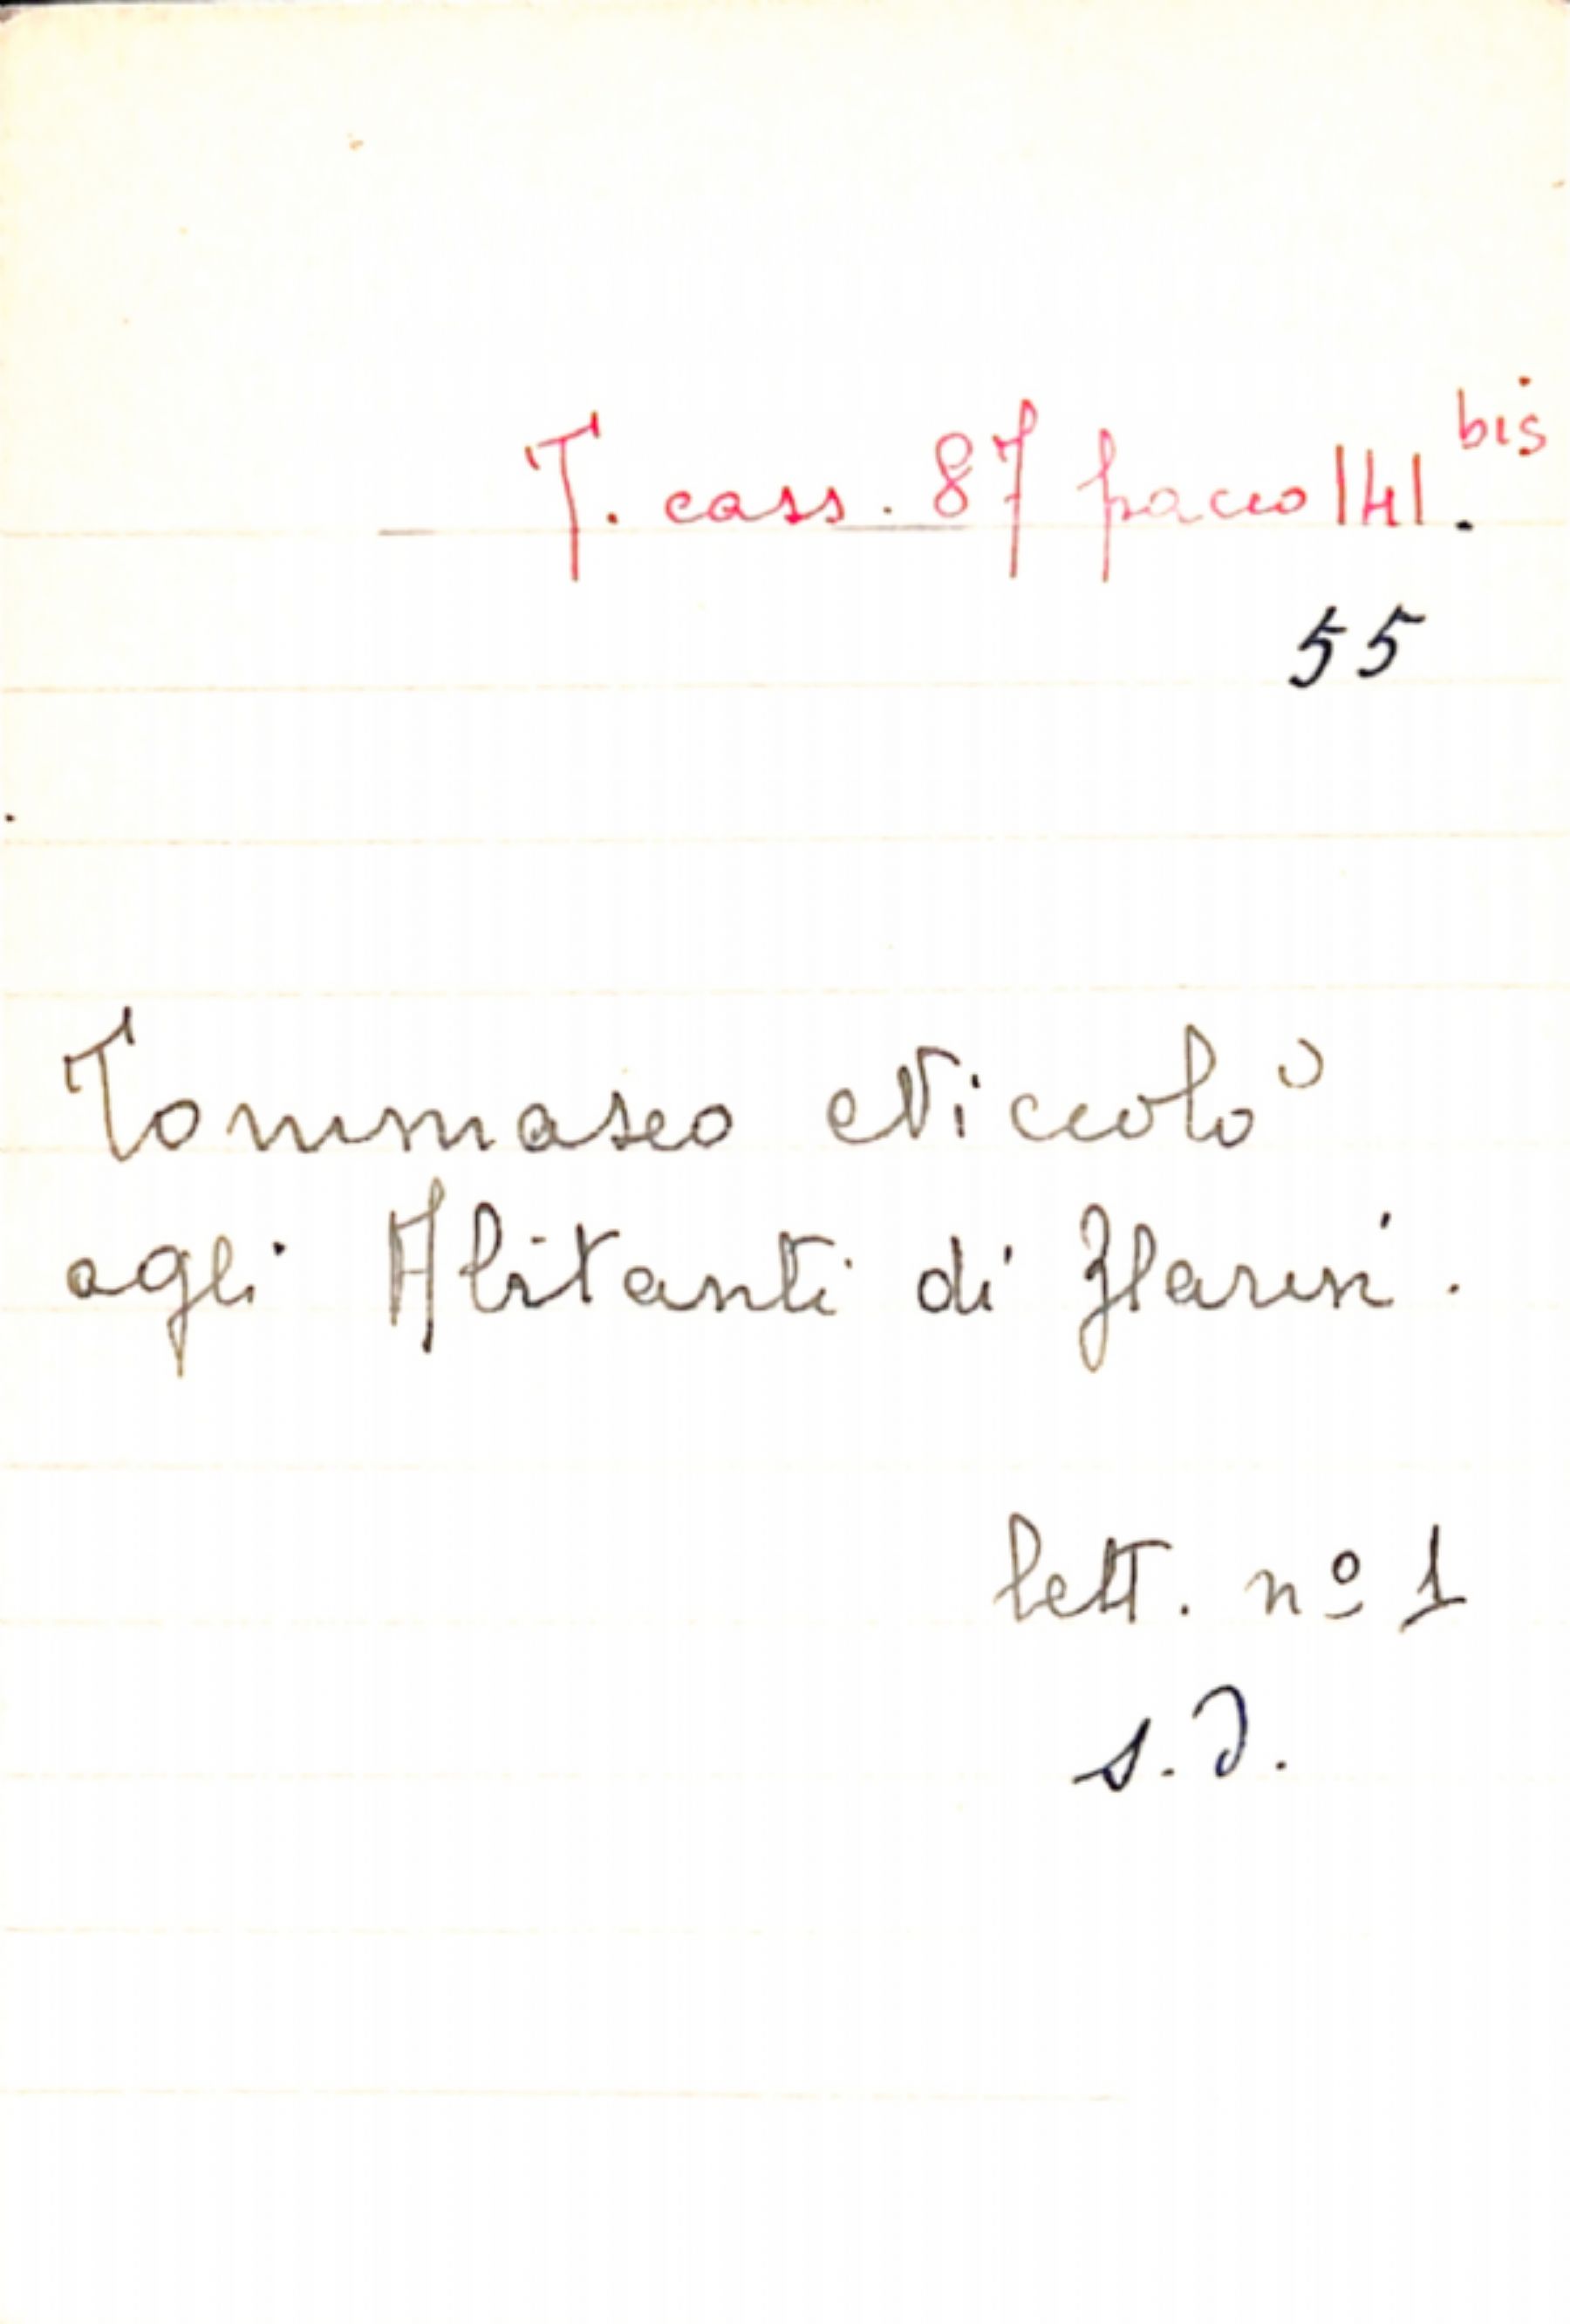 T. cass. 87 pacco 141.bis
55
Tommaseo Niccolò
agli Abitanti di Zlarin.
lett. nº 1
s.d.